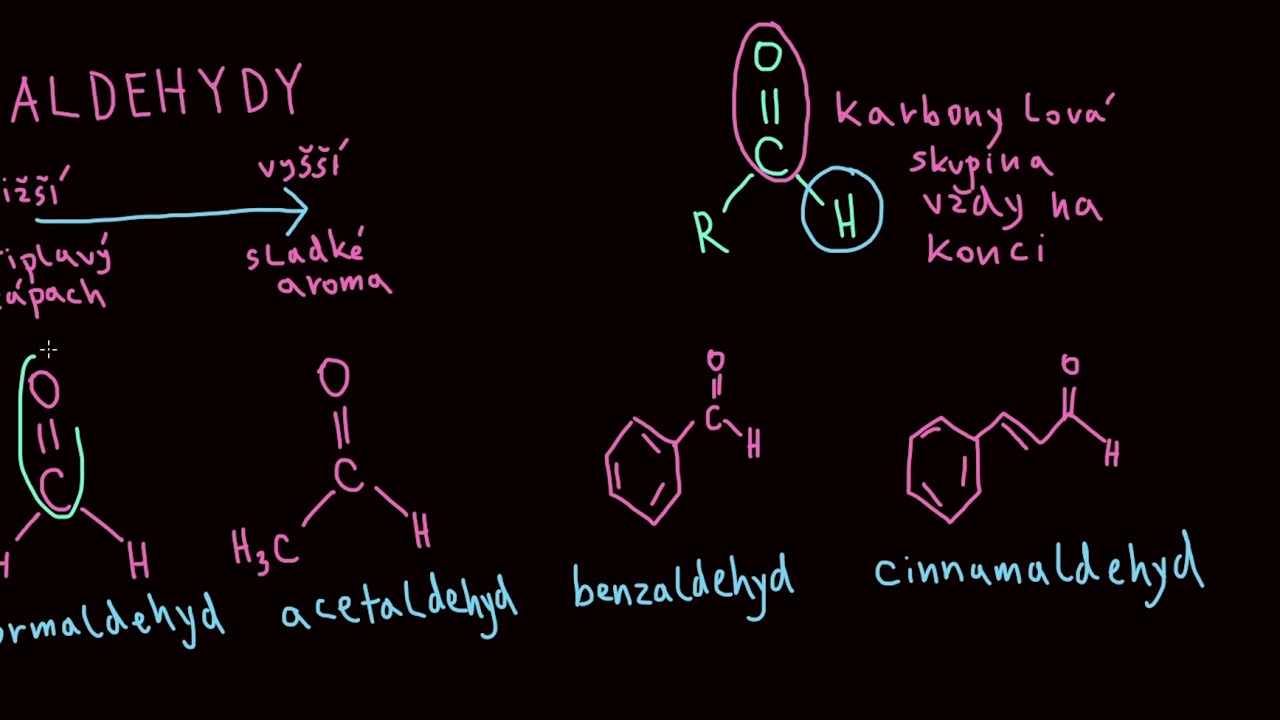 ALDEHYDY
ižší
vyšší
iplavý
ápach
sladké
aroma
O
C
R
H
karbonylová
skupina
vždy na
konci
O
C
H
H
ormaldehyd
O
C
H₃C
H
acetaldehyd
O
C
H
benzaldehyd
O
H
cinnamaldehyd